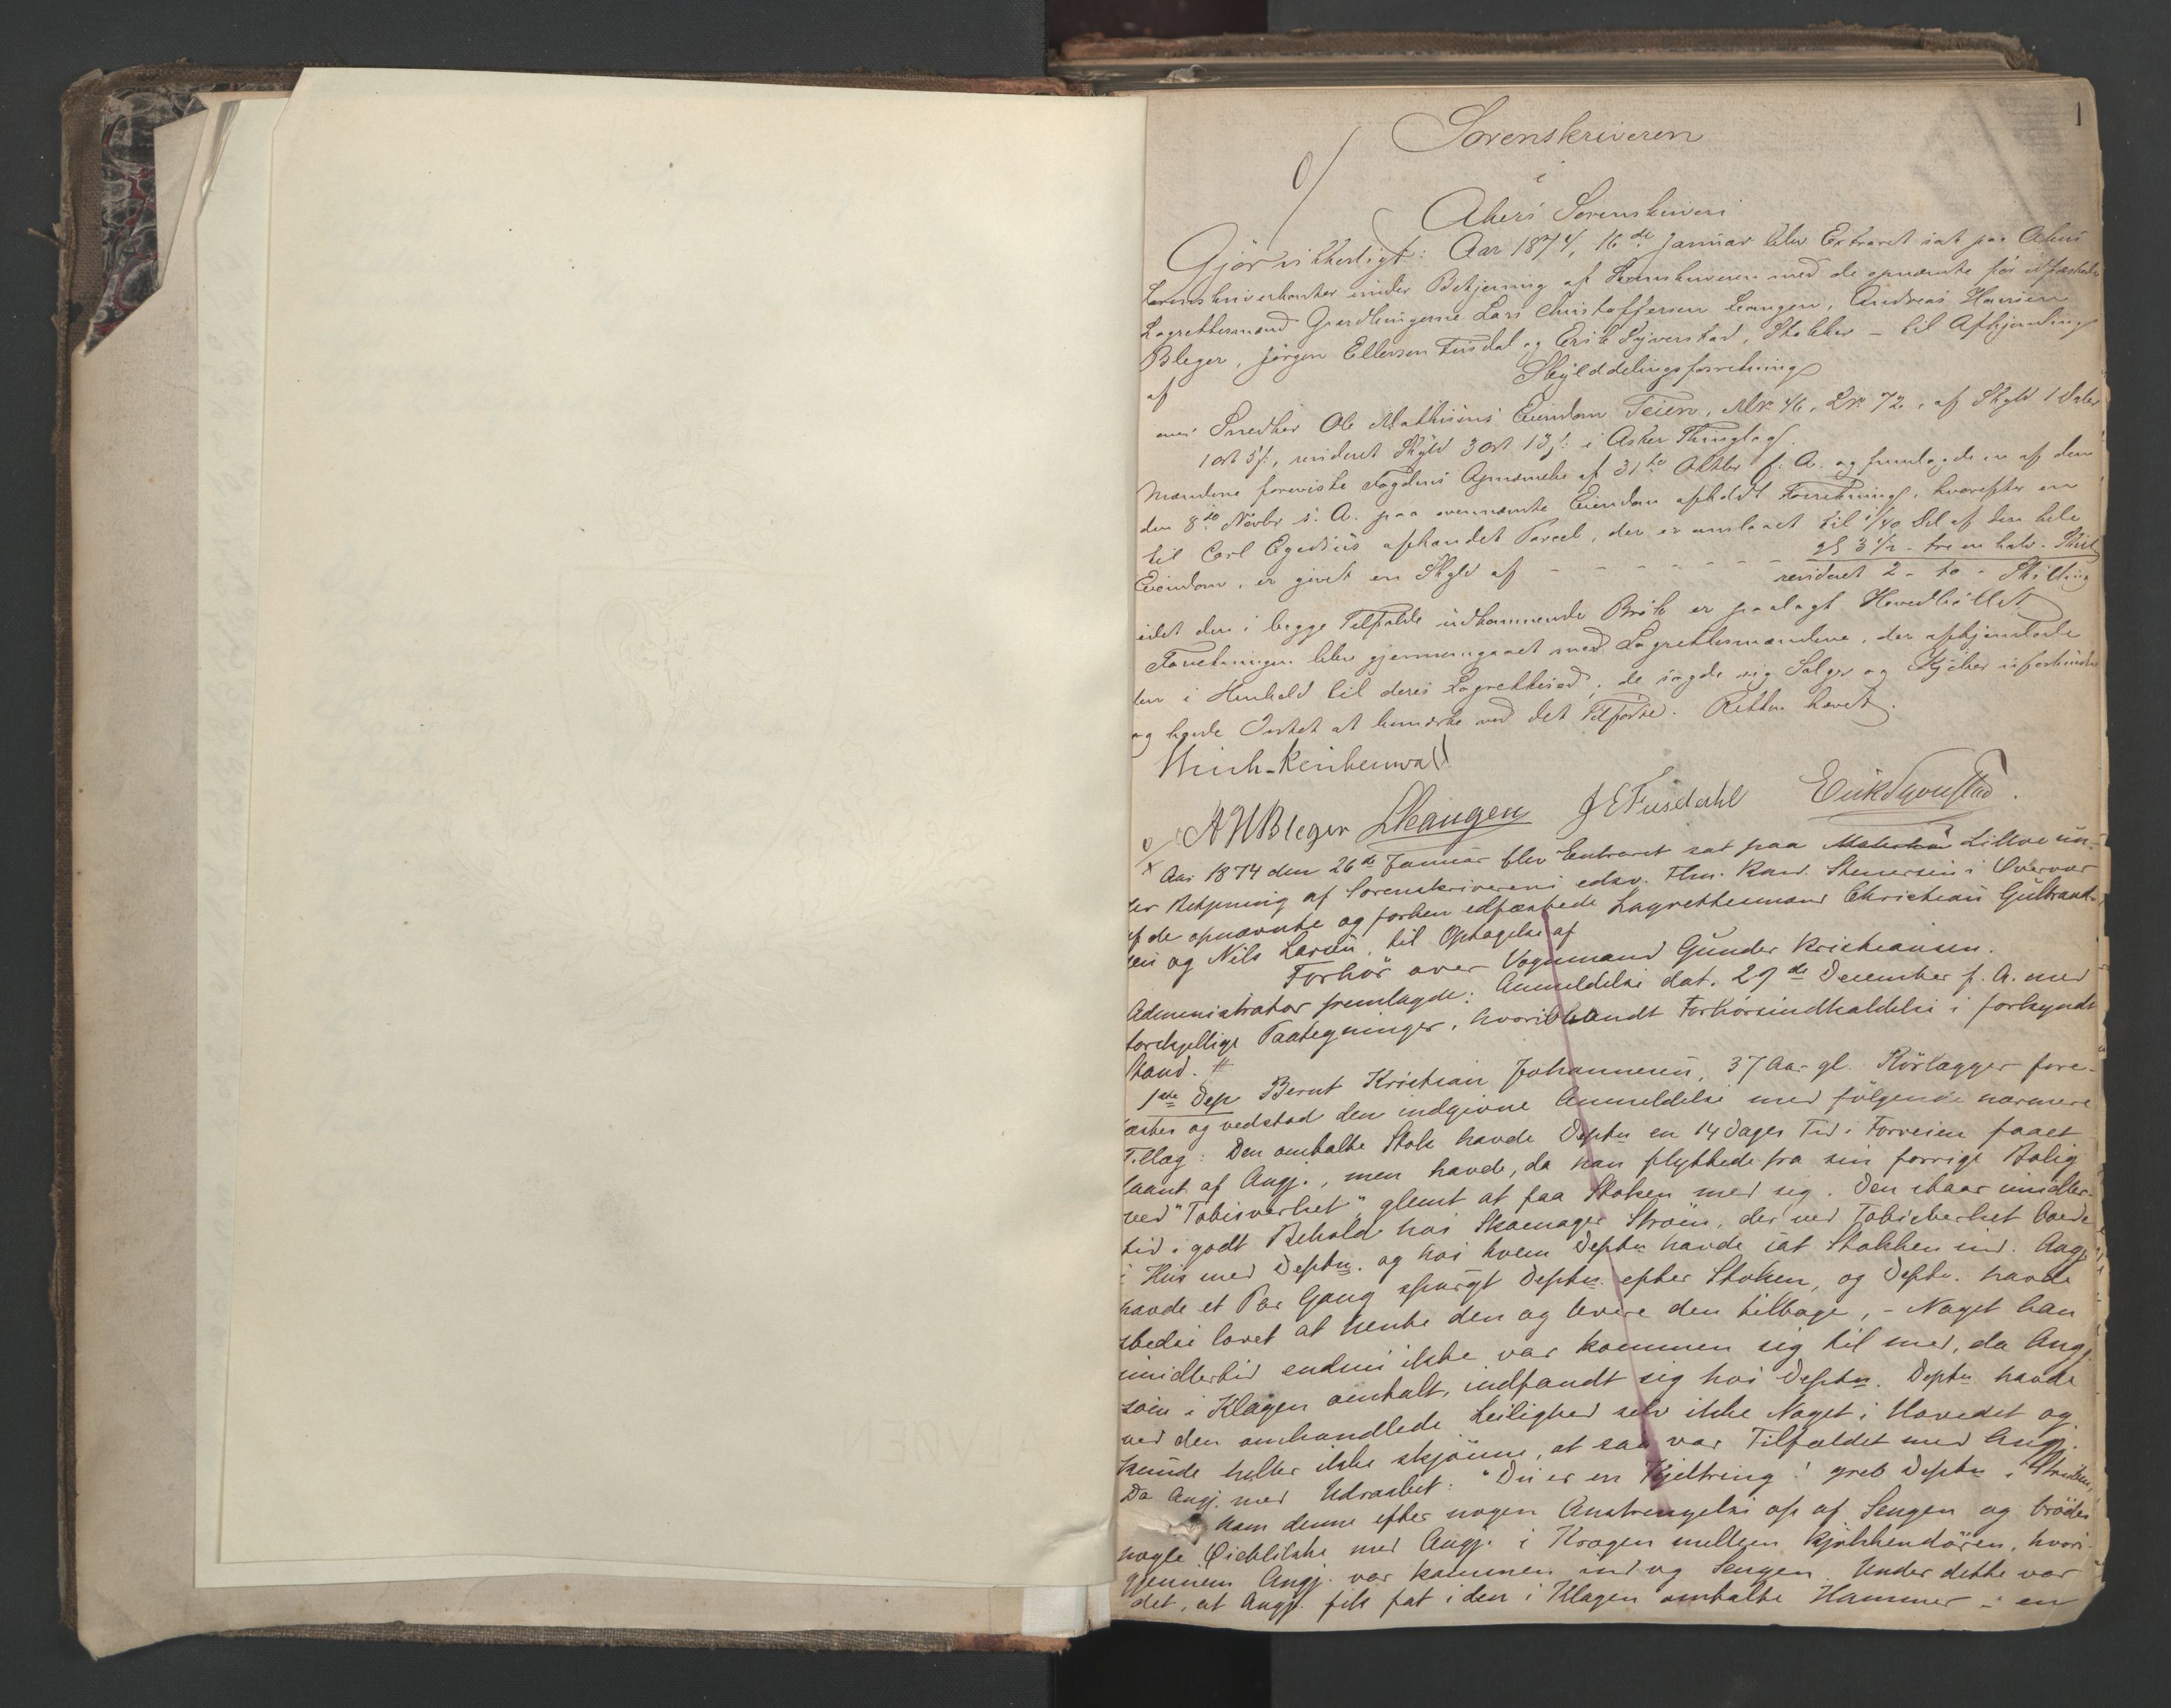 1
Sorenskriveren
i
Akers Sorenskriveri
Gjør vitterligt: Aar 1874, 16de Januar blev Extraret sat paa Akers
Sorenskriverkontor under Betjening af Sorenskriveren med de opnævnte før edfæstede
Lagrettesmænd Gaardbrugerne Lars Christoffersen Leangen, Andreas Hansen
Bleger, Jørgen Ellersen Fusdal og Erik Syverstad, Stokker – til Afhjemling
af
Skylddelingsforretning
over Snedker Ole Mathisens Eiendom Teien, Mr: 46, Lr: 72, af Skyld 1 Daler
1 ort 5 s:, revideret Skyld 3 Ort 13 s: i Asker Thinglag.
Mændene foreviste Fogdens Opnævnelse af 31te Oktbr f. A. og fremlagde en af dem
den 8de Novbr s. A. paa ovennævnte Eiendom afholdt Forretning, hvorefter en
til Carl Egedius afhændet Parcel, der er anslaaet til 1/40 Del af den hele
Eiendom, er givet en Skyld af – – – – – – 3 1/2 – tre en halv – Skill
revideret 2 – to – Skilling
idet den i begge Tilfælde udkommende Brøk er paalagt Hovedbøllet
Forretningen blev gjennemgaaet med Lagrettesmændene, der afhjemlede
den i Henhold til deres Lagretteed; de sagde sig Sælger og Kjøber uforbundne
og havde Intet at bemærke ved det Tilførte. Retten hævet.
AHBleger LLeangen J E Fusdahl Erik Syverstad.
Aar 1874 den 26de Januar blev Extraret sat paa Lilleø un-
der Betjening af Sorenskriverens edsv. Fm. Kand. Stenersen i Overvær
af de opnævnte og forhen edfæstede Lagrettesmænd Christian Gulbrand-
sen og Nils Larsen til Optagelse af
Forhør over Vognmand Gunder Kristiansen.
Administrator fremlagde: Anmeldelse dat. 29de December f. A. med
forskjellige Paategninger, hvoriblandt Forhørsindkaldelse i forkyndt
Stand. #
1ste Dep Bernt Kristian Johannesen, 37 Aar gl. Rörlægger fore-
æstes og vedstod den indgivne Anmeldelse med følgende nærmere
Tillæg: Den omtalte Stok havde Deptn en 14 Dages Tid i Forveien faaet
laant af Angj., men havde, da han flyttede fra sin forrige Bolig
ved "Tobisverket", glemt at faa Stokken med sig. Den staar imidler-
tid i godt Behold hos Skomager Strøm, der ved Tobisverket boede
i Hus med Deptn. og hos hvem Deptn havde sat Stokken ind. Angj
havde et Par Gang spurgt Deptn. efter Stokken, og Deptn. havde
stedse lovet at hente den og levere den tilbage, – Noget han
imidlertid endnu ikke var kommen sig til med, da Angj.
som i Klagen omtalt, indfandt sig hos Deptn. Deptn havde
ved den omhandlede Leilighed selv ikke Noget i Hovedet og
kunde heller ikke skjønne, at saa var Tilfældet med Angj.
Da Angj. med Udraabet: "Du er en Kjeltring! greb Deptn i Struben,
kom denne efter nogen Anstrengelse op af Sengen og brødes
nogle Øieblikke med Angj. i Krogen mellem Kjøkkendøren, hvori-
gjennem Angj. var kommen ind og Sengen. Under dette var
det, at Angj. fik fat i den i Klagen omtalte Hammer – en